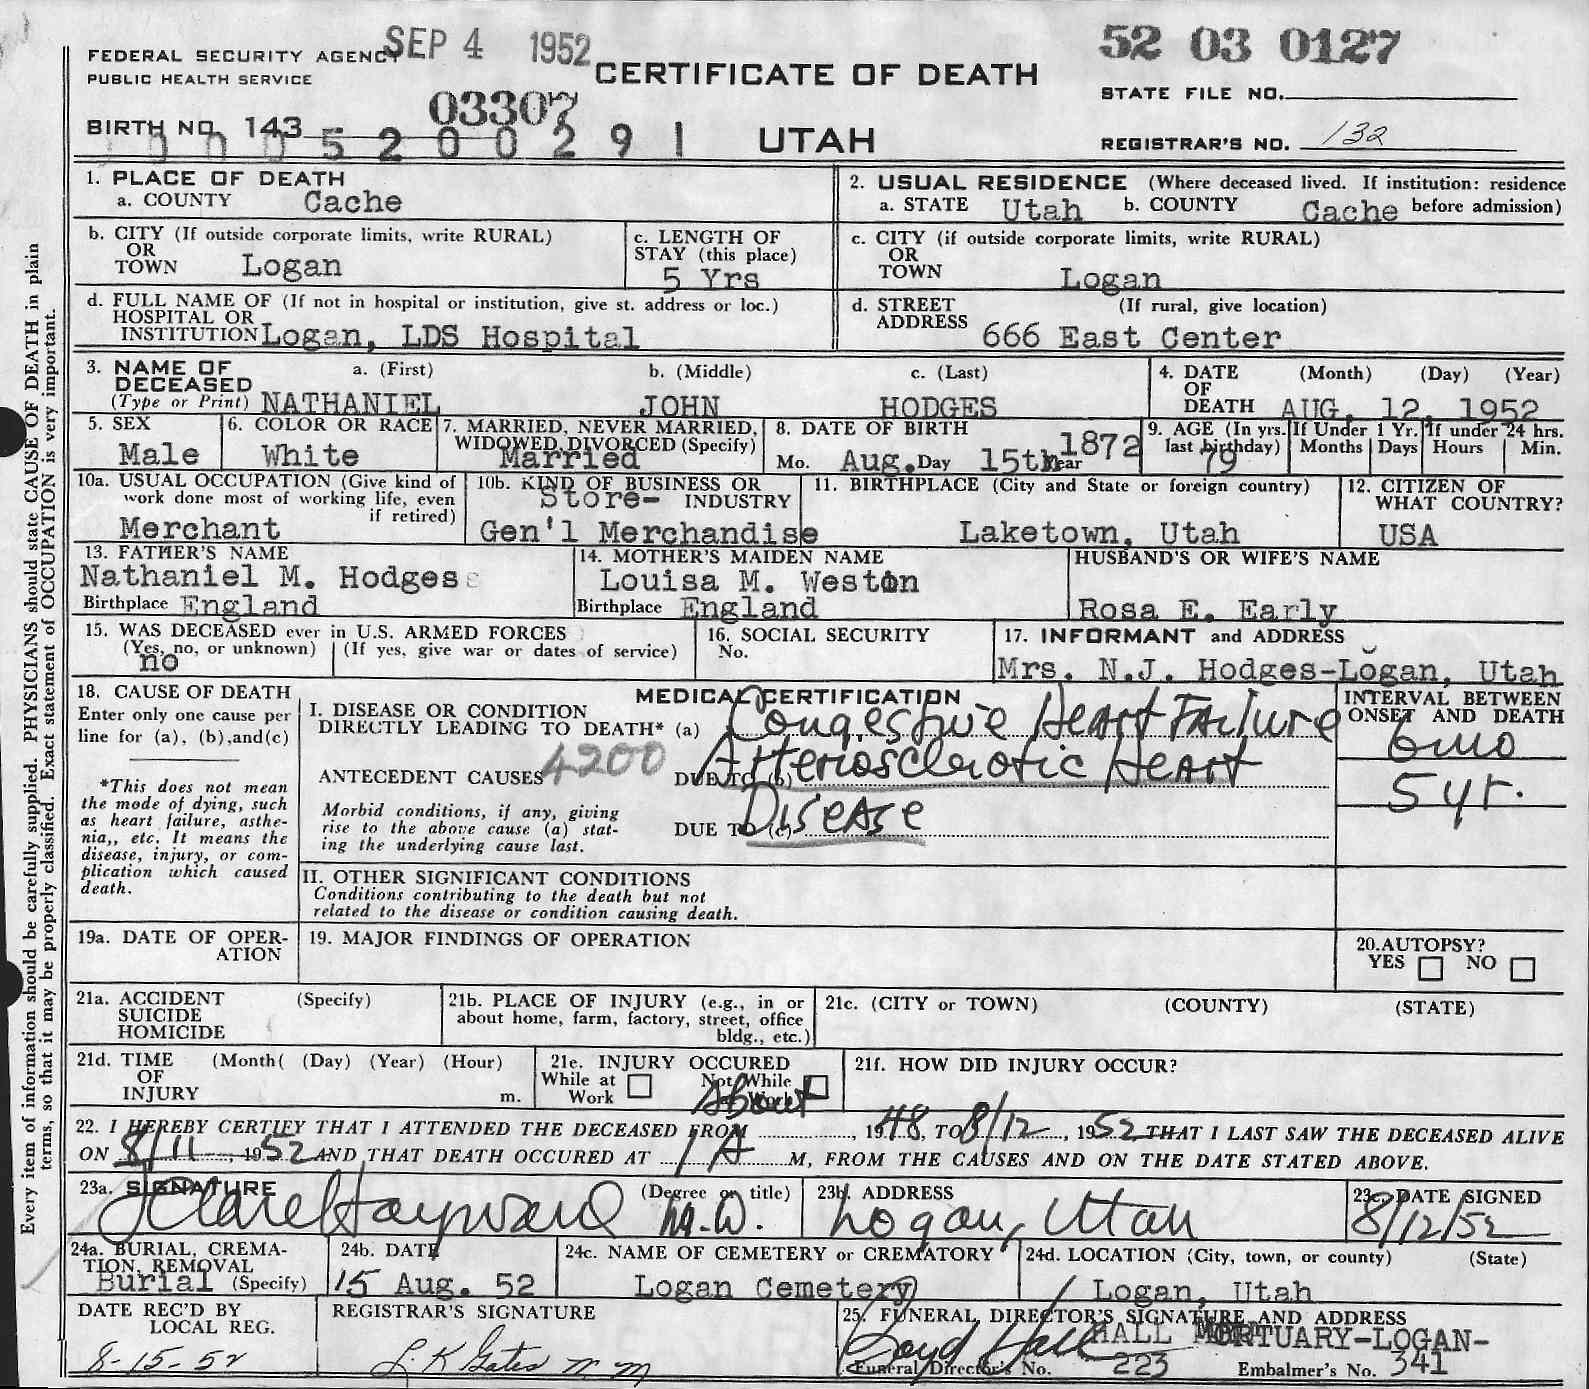 SEP 4 1952
52 03 0127
FEDERAL SECURITY AGENCY
PUBLIC HEALTH SERVICE
CERTIFICATE OF DEATH
STATE FILE NO.
03307
BIRTH NO. 143
5 2 0 0 2 9 1
UTAH
REGISTRAR'S NO. 132
1. PLACE OF DEATH
a. COUNTY Cache
2. USUAL RESIDENCE (Where deceased lived. If institution: residence
a. STATE Utah b. COUNTY Cache before admission)
b. CITY (If outside corporate limits, write RURAL)
OR
TOWN Logan
c. LENGTH OF
STAY (this place)
5 Yrs
c. CITY (if outside corporate limits, write RURAL)
OR
TOWN Logan
d. FULL NAME OF (If not in hospital or institution, give st. address or loc.)
HOSPITAL OR
INSTITUTION Logan, LDS Hospital
d. STREET (If rural, give location)
ADDRESS 666 East Center
3. NAME OF a. (First) b. (Middle) c. (Last)
DECEASED
(Type or Print) NATHANIEL JOHN HODGES
4. DATE (Month) (Day) (Year)
OF
DEATH AUG. 12, 1952
5. SEX
Male
6. COLOR OR RACE
White
7. MARRIED, NEVER MARRIED,
WIDOWED, DIVORCED (Specify)
Married
8. DATE OF BIRTH
Mo. Aug. Day 15th Year 1872
9. AGE (In yrs.
last birthday)
79
If Under 1 Yr.
Months Days
If under 24 hrs.
Hours Min.
10a. USUAL OCCUPATION (Give kind of
work done most of working life, even
if retired)
Merchant
10b. KIND OF BUSINESS OR
Store- INDUSTRY
Gen'l Merchandise
11. BIRTHPLACE (City and State or foreign country)
Laketown, Utah
12. CITIZEN OF
WHAT COUNTRY?
USA
13. FATHER'S NAME
Nathaniel M. Hodges
Birthplace England
14. MOTHER'S MAIDEN NAME
Louisa M. Weston
Birthplace England
HUSBAND'S OR WIFE'S NAME
Rosa E. Early
15. WAS DECEASED ever in U.S. ARMED FORCES
(Yes, no, or unknown) (If yes, give war or dates of service)
no
16. SOCIAL SECURITY
No.
17. INFORMANT and ADDRESS
Mrs. N.J. Hodges-Logan, Utah
18. CAUSE OF DEATH
Enter only one cause per
line for (a), (b),and(c)
*This does not mean
the mode of dying, such
as heart failure, asthe-
nia,, etc. It means the
disease, injury, or com-
plication which caused
death.
MEDICAL CERTIFICATION
I. DISEASE OR CONDITION
DIRECTLY LEADING TO DEATH* (a) Congestive Heart Failure
ANTECEDENT CAUSES 4200 DUE TO (b) Arteriosclerotic Heart
Morbid conditions, if any, giving
rise to the above cause (a) stat-
ing the underlying cause last.
DUE TO (c) Disease
INTERVAL BETWEEN
ONSET AND DEATH
6mo
5 yr.
II. OTHER SIGNIFICANT CONDITIONS
Conditions contributing to the death but not
related to the disease or condition causing death.
19a. DATE OF OPER-
ATION
19. MAJOR FINDINGS OF OPERATION
20.AUTOPSY?
YES NO
21a. ACCIDENT (Specify)
SUICIDE
HOMICIDE
21b. PLACE OF INJURY (e.g., in or
about home, farm, factory, street, office
bldg., etc.)
21c. (CITY or TOWN) (COUNTY) (STATE)
21d. TIME (Month( (Day) (Year) (Hour)
OF
INJURY m.
21e. INJURY OCCURED
While at Work
Not While at Work
21f. HOW DID INJURY OCCUR?
About
22. I HEREBY CERTIFY THAT I ATTENDED THE DECEASED FROM, 1948, TO 8/12, 1952 THAT I LAST SAW THE DECEASED ALIVE
ON 8/11, 1952 AND THAT DEATH OCCURED AT 1 A M, FROM THE CAUSES AND ON THE DATE STATED ABOVE.
23a. SIGNATURE (Degree or title)
Clare Hayward M.D.
23b. ADDRESS
Logan, Utah
23c. DATE SIGNED
8/12/52
24a. BURIAL, CREMA-
TION, REMOVAL
Burial (Specify)
24b. DATE
15 Aug. 52
24c. NAME OF CEMETERY or CREMATORY
Logan Cemetery
24d. LOCATION (City, town, or county) (State)
Logan, Utah
DATE REC'D BY
LOCAL REG.
8-15-52
REGISTRAR'S SIGNATURE
25. FUNERAL DIRECTOR'S SIGNATURE AND ADDRESS
Loyd Hall HALL MORTUARY-LOGAN-
Funeral Director's No. 223 Embalmer's No. 341
Every item of information should be carefully supplied. PHYSICIANS should state CAUSE OF DEATH in plain
terms, so that it may be properly classified. Exact statement of OCCUPATION is very important.